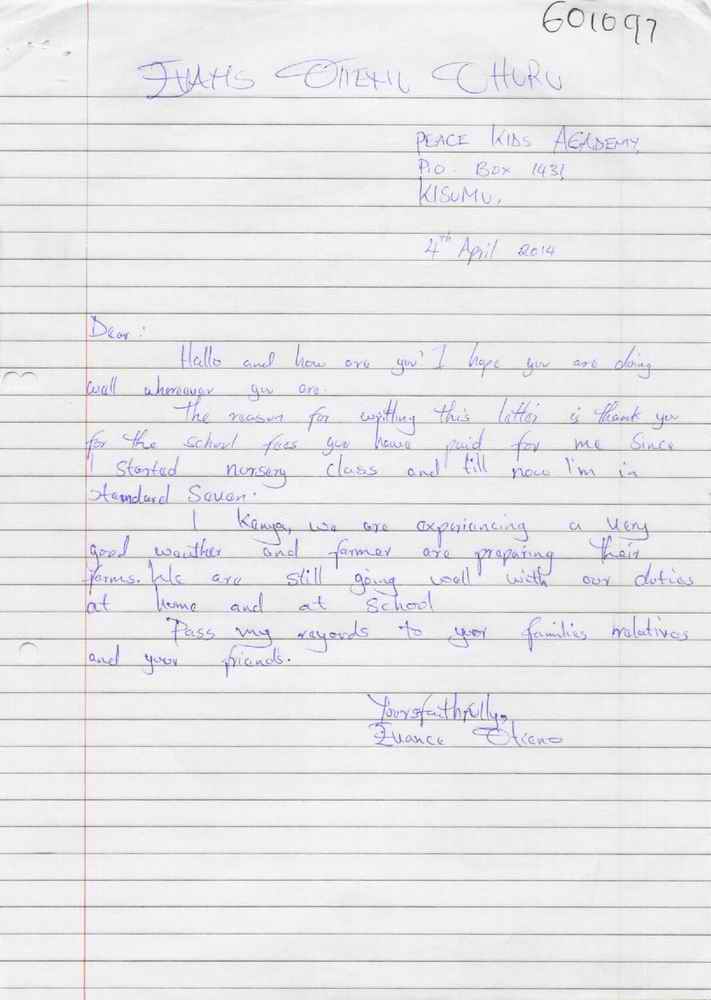 601097
EVANS OTIENO OHURU
PEACE KIDS ACADEMY,
P.O. BOX 1431
KISUMU,
4th April 2014
Dear:
Hallo and how are you? I hope you are doing
well whereever you are.
The reason for writting this letter is thank you
for the school fees you have paid for me since
I started nursery class and till now I'm in
standard Seven.
I Kenya, we are experiancing a very
good weather and farmer are preparing their
farms. We are still going well with our duties
at home and at school
Pass my regards to your families relatives
and your friends.
Yoursfaithfully,
Evance Otieno